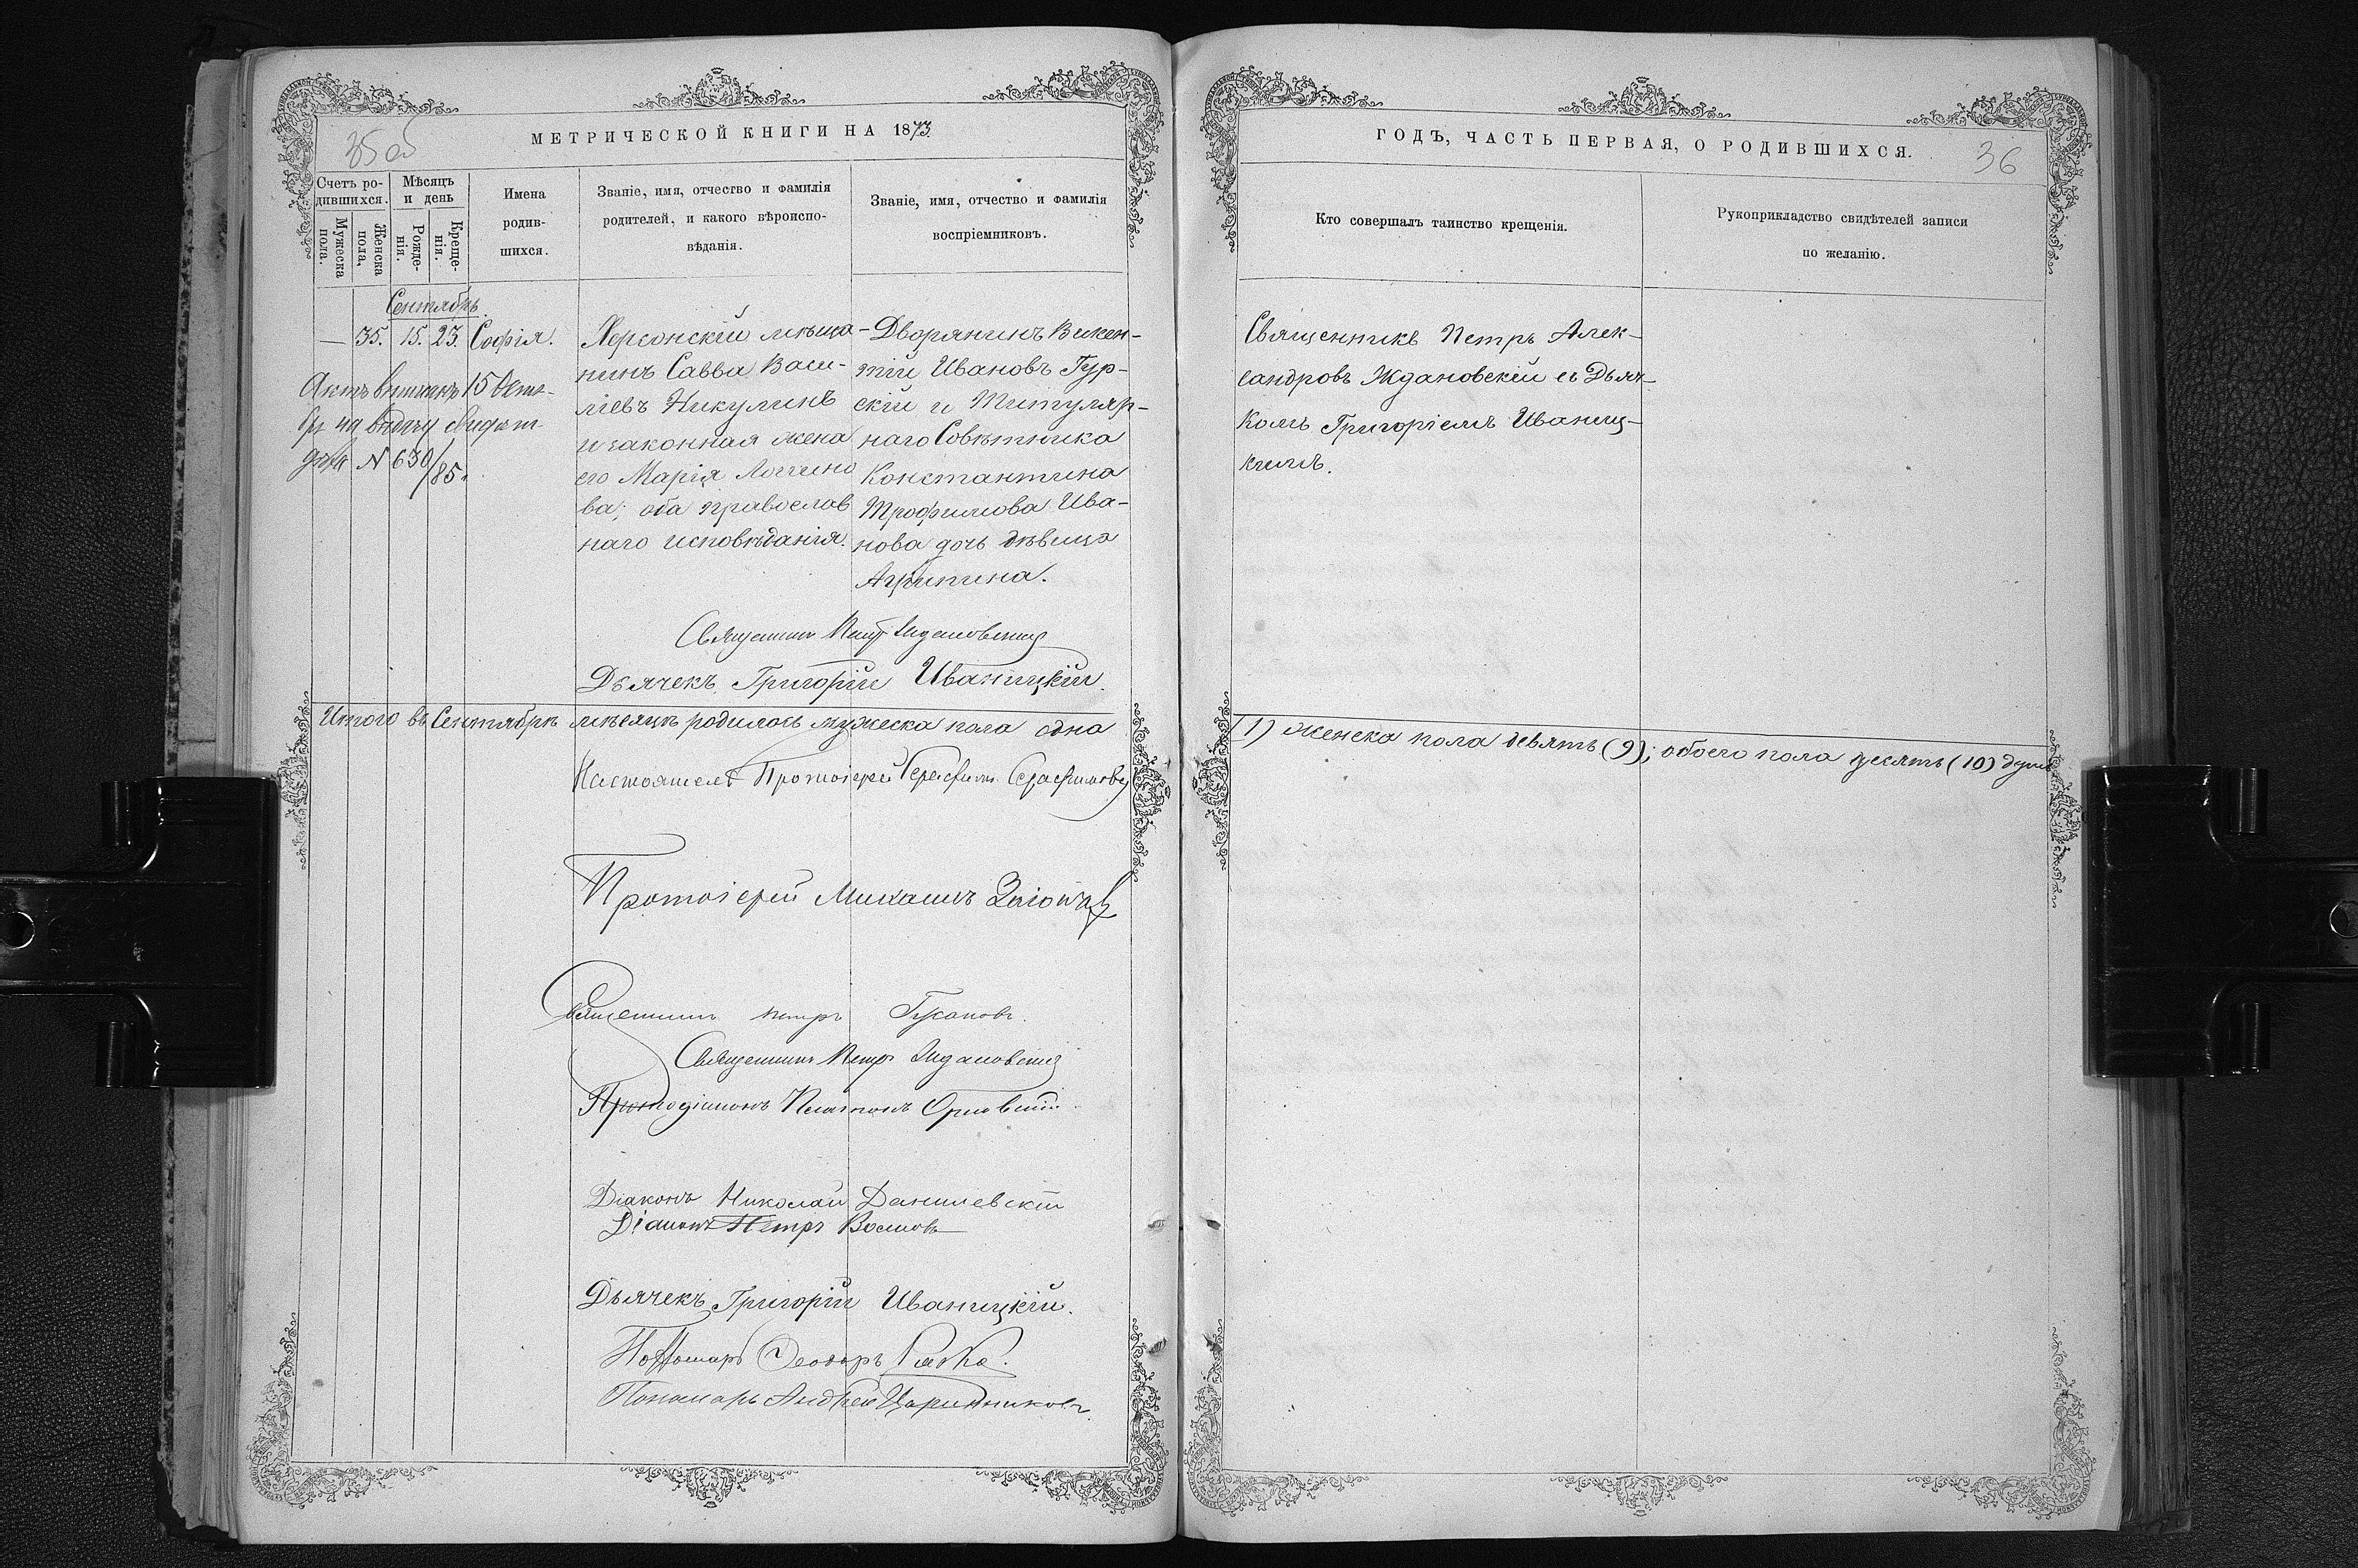 35 об
МЕТРИЧЕСКОЙ КНИГИ НА 1873
Счетъ ро-
дившихся.
Мужеска
пола.
Женска
пола.
Мѣсяцъ
и день
Рожде-
нія.
Креще-
нія.
Имена
родив-
шихся.
Званіе, имя, отчество и фамилія
родителей, и какого вѣроиспо-
вѣданія.
Званіе, имя, отчество и фамилія
воспріемниковъ.
Сентябрь.
— 35. 15. 23. Софія.
Херсонскій мѣща-
нинъ Савва Васи-
ліевъ Никулинъ
и законная жена
его Марія Логгино
ва; оба православ
наго исповѣданія.
Дворянинъ Викен-
тій Ивановъ Гур-
скій и Титуляр-
наго Совѣтника
Константина
Трофимова Ива-
нова дочь дѣвица
Агрипина.
на выдачу
№ 630/85.
Священникъ Петръ Ждановскій
Дьячекъ Григорій Иваницкій.
Итого въ Сентябрѣ мѣсяцѣ родилось мужеска пола одна
Настоятель Протоіерей Серафимовъ
Протоіерей Михаилъ
Священникъ Петръ
Священникъ Петръ Ждановскій
Протодіаконъ Платонъ Орловскій
Діаконъ Николай Данилевскій
Діаконъ Петръ
Дьячекъ Григорій Иваницкій.
Пономарь Ѳеодоръ
Пономарь Андрей
ГОДЪ, ЧАСТЬ ПЕРВАЯ, О РОДИВШИХСЯ.
36
Кто совершалъ таинство крещенія.
Рукоприкладство свидѣтелей записи
по желанію.
Священникъ Петръ Алек-
сандровъ Ждановскій съ Дьяч-
комъ Григоріемъ Иваниц-
кимъ.
(1) женска пола девять (9); обоего пола десять (10) душъ